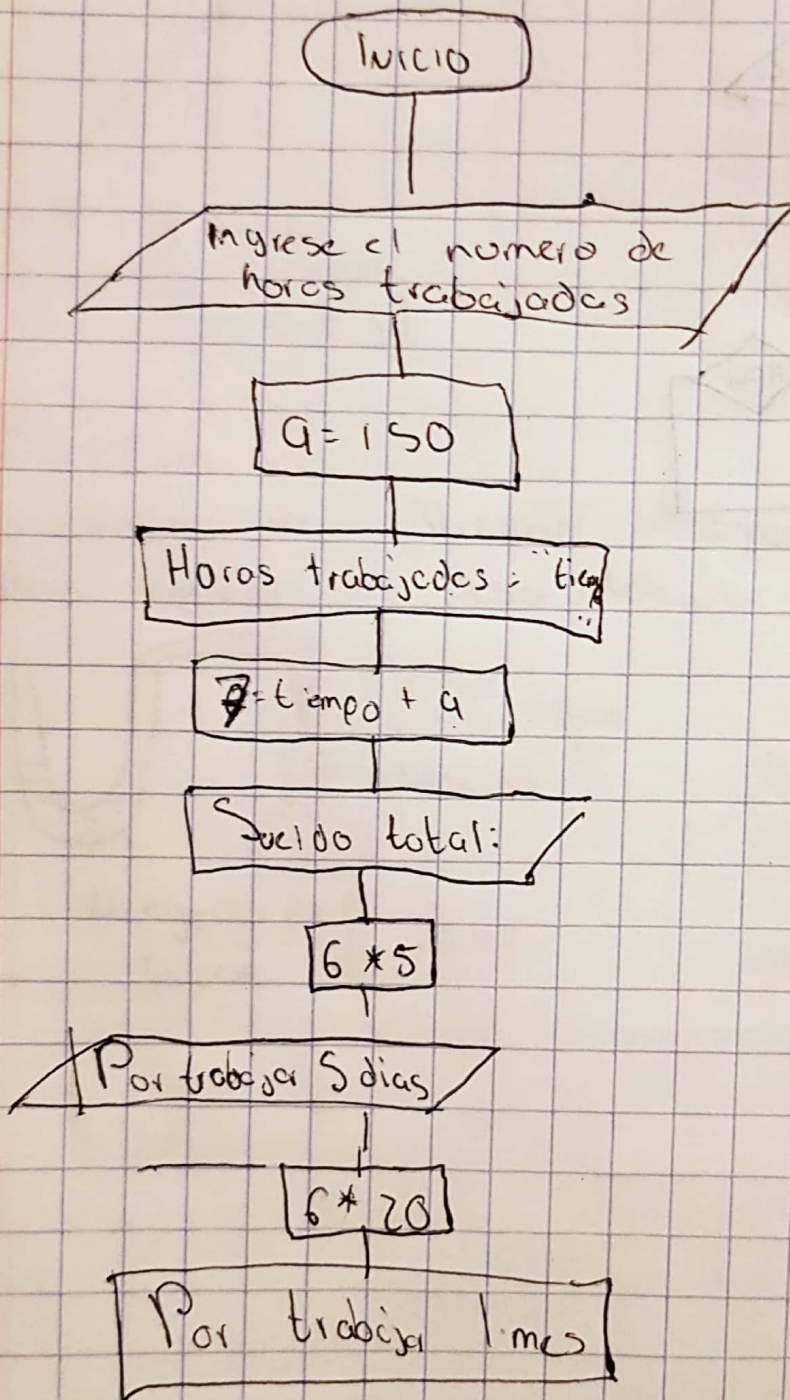 INICIO
Ingrese el numero de
horas trabajadas
a = 150
Horas trabajadas =
= tiempo + a
Sueldo total:
6 * 5
Por trabajar 5 dias
6 * 20
Por trabajar 1 mes